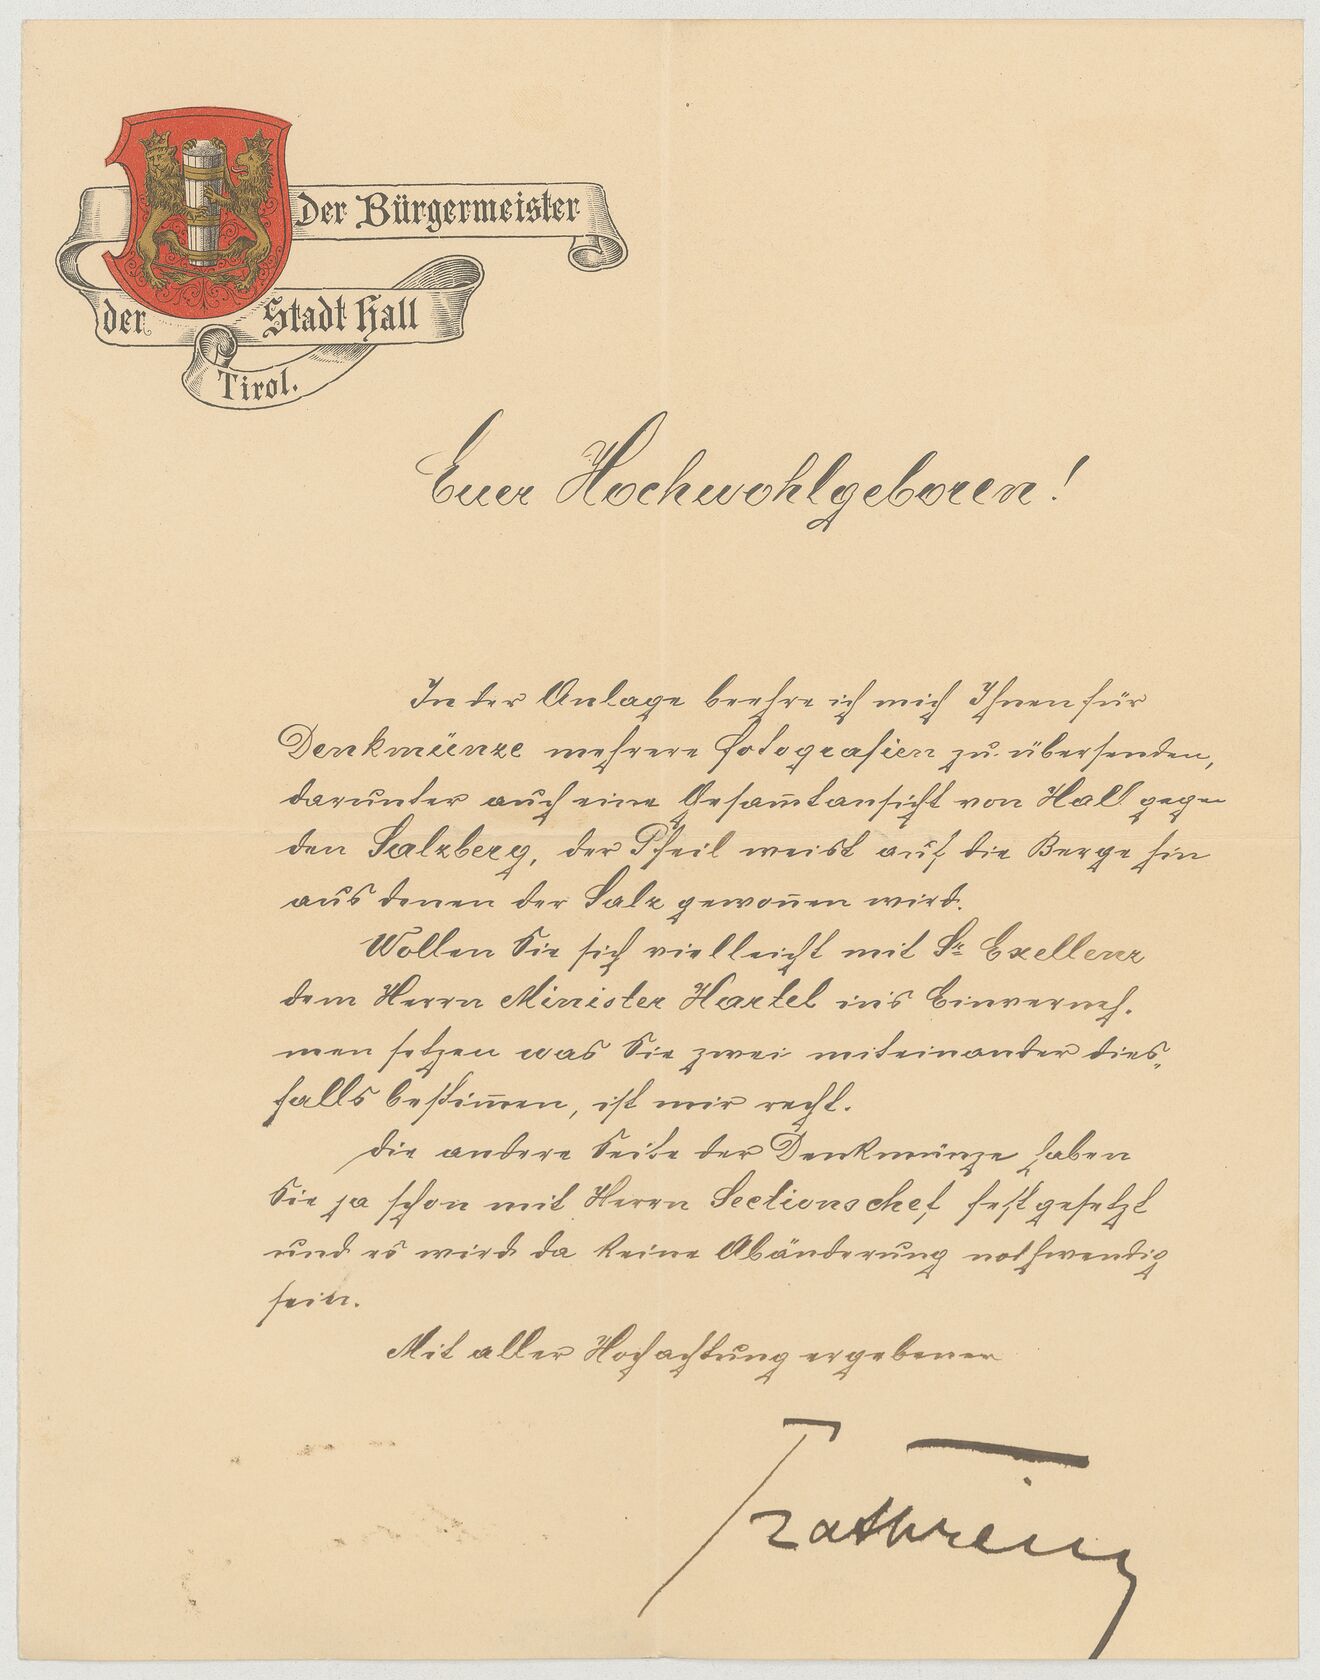 Der Bürgermeister
der Stadt Hall
Tirol.
Euer Hochwohlgeboren!
In der Anlage beehre ich mich Ihnen für
Denkmünze mehrere Fotografien zu übersenden,
darunter auch eine Gesam̅tansicht von Hall gegen
den Salzberg, der Pfeil weist auf die Berge hin
aus denen der Salz gewon̅en wird.
Wollen Sie sich vielleicht mit Sr Exellenz
dem Herrn Minister Hartel in's Einverneh-
men setzen was Sie zwei miteinander dies-
falls bestim̅en, ist mir recht.
Die andere Seite der Denkmünze haben
Sie ja schon mit Herrn Sectionschef festgesetzt
und es wird da keine Abänderung nothwendig
sein.
Mit aller Hochachtung ergebener